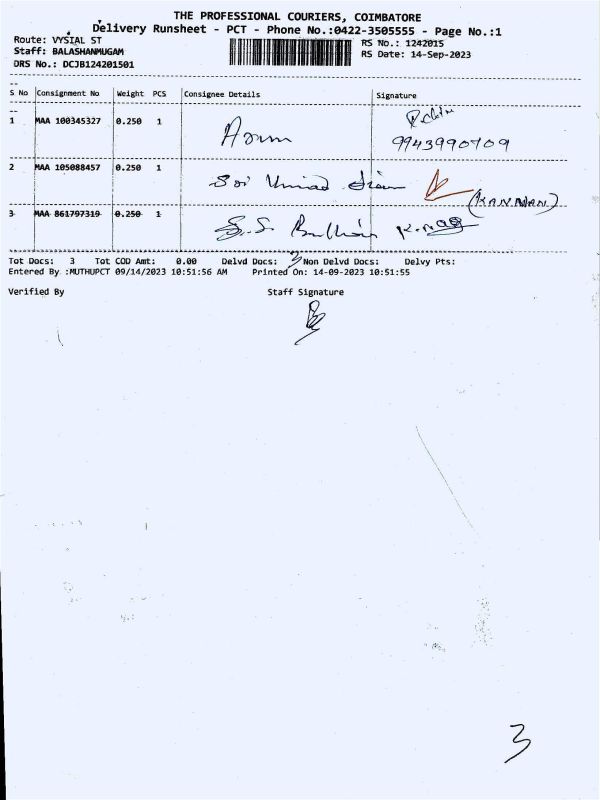 THE PROFESSIONAL COURIERS, COIMBATORE
Delivery Runsheet - PCT - Phone No.:0422-3505555 - Page No.:1
Route: VYSIAL ST RS No.: 1242015
Staff: BALASHANMUGAM RS Date: 14-Sep-2023
DRS No.: DCJB124201501
S No Consignment No Weight PCS Consignee Details Signature
1 MAA 100345327 0.250 1 Arun
9943990709
2 MAA 105088457 0.250 1 Sri
(KANNAN)
3 MAA 861797319 0.250 1 S.S. Bullion
Tot Docs: 3 Tot COD Amt: 0.00 Delvd Docs: 3 Non Delvd Docs: Delvy Pts:
Entered By :MUTHUPCT 09/14/2023 10:51:56 AM Printed On: 14-09-2023 10:51:55
Verified By Staff Signature
3